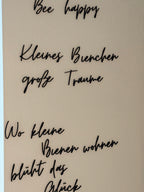 Bee happy
Kleines Bienchen
große Träume
Wo kleine
Bienen wohnen
blüht das
Glück